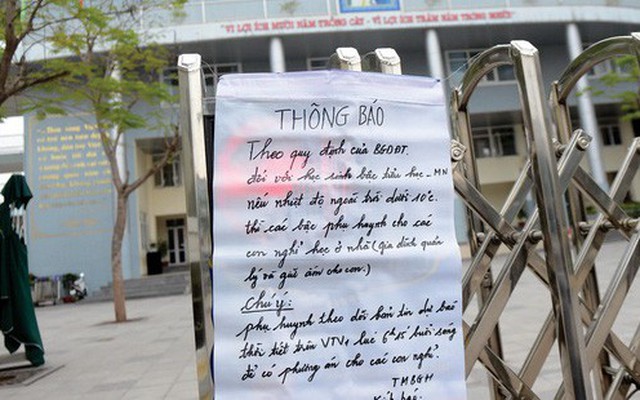 VÌ LỢI ÍCH MƯỜI NĂM TRỒNG CÂY - VÌ LỢI ÍCH TRĂM NĂM TRỒNG NGƯỜI
THÔNG BÁO
Theo quy định của BGDĐT.
đối với học sinh bậc tiểu học - MN
nếu nhiệt độ ngoài trời dưới 10°c.
thì các bậc phụ huynh cho các
con nghỉ học ở nhà (gia đình quản
lý và giữ ấm cho con.)
Chú ý:
phụ huynh theo dõi bản tin dự báo
thời tiết trên VTV1 lúc 6h15' buổi sáng
để có phương án cho các con nghỉ.
TMBGH